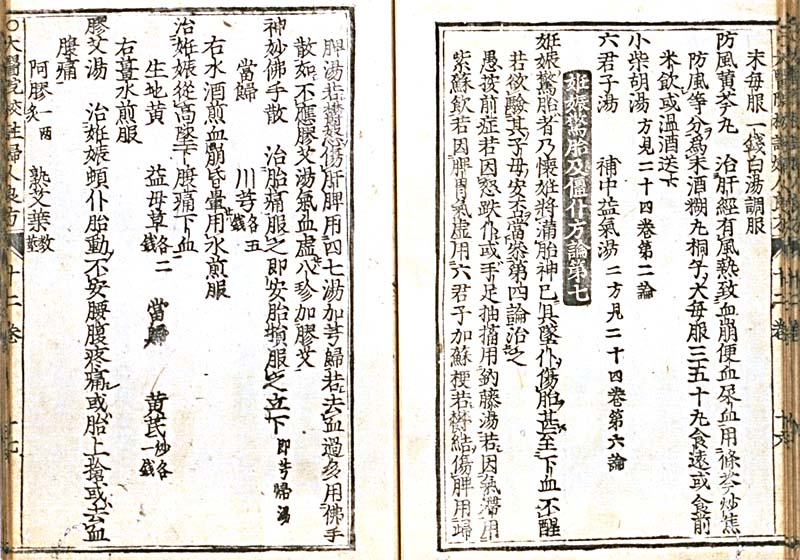 末每服一錢白湯調服
防風黄芩丸　治肝經有風熱致血崩便血尿血用條芩炒焦
防風等分爲末酒糊丸桐子大每服三五十丸食遠或食前
米飲或温酒送下
小柴胡湯　方見二十四卷第二論
六君子湯　補中益氣湯　二方見二十四卷第六論
妊娠驚胎及僵仆方論第七
妊娠驚胎者乃懷妊將滿胎神已具墜仆傷胎甚至下血不醒
若欲驗其子母安否當叅第四論治之
愚按前症若因怒跌仆或手足抽搐用鈎藤湯若因氣滯用
紫蘇飲若因脾胃氣虛用六君子加蘇梗若欝結傷脾用歸
脾湯若欝怒傷肝脾用四七湯加芎歸若去血過多用佛手
散如不應膠艾湯氣血虛八珍加膠艾
神妙佛手散　治胎痛服之即安胎損服之立下　即芎歸湯
當歸　川芎各五錢
右水酒煎血崩昏暈用水煎服
治妊娠從高墜下腹痛下血
生地黄　益母草各二錢　當歸　黄芪炒各一錢
右薑水煎服
膠艾湯　治妊娠頓仆胎動不安腰腹疼痛或胎上搶或去血
腹痛
阿膠炙一兩　熟艾葉數莖
○太醫院校註婦人良方　十二卷　十七